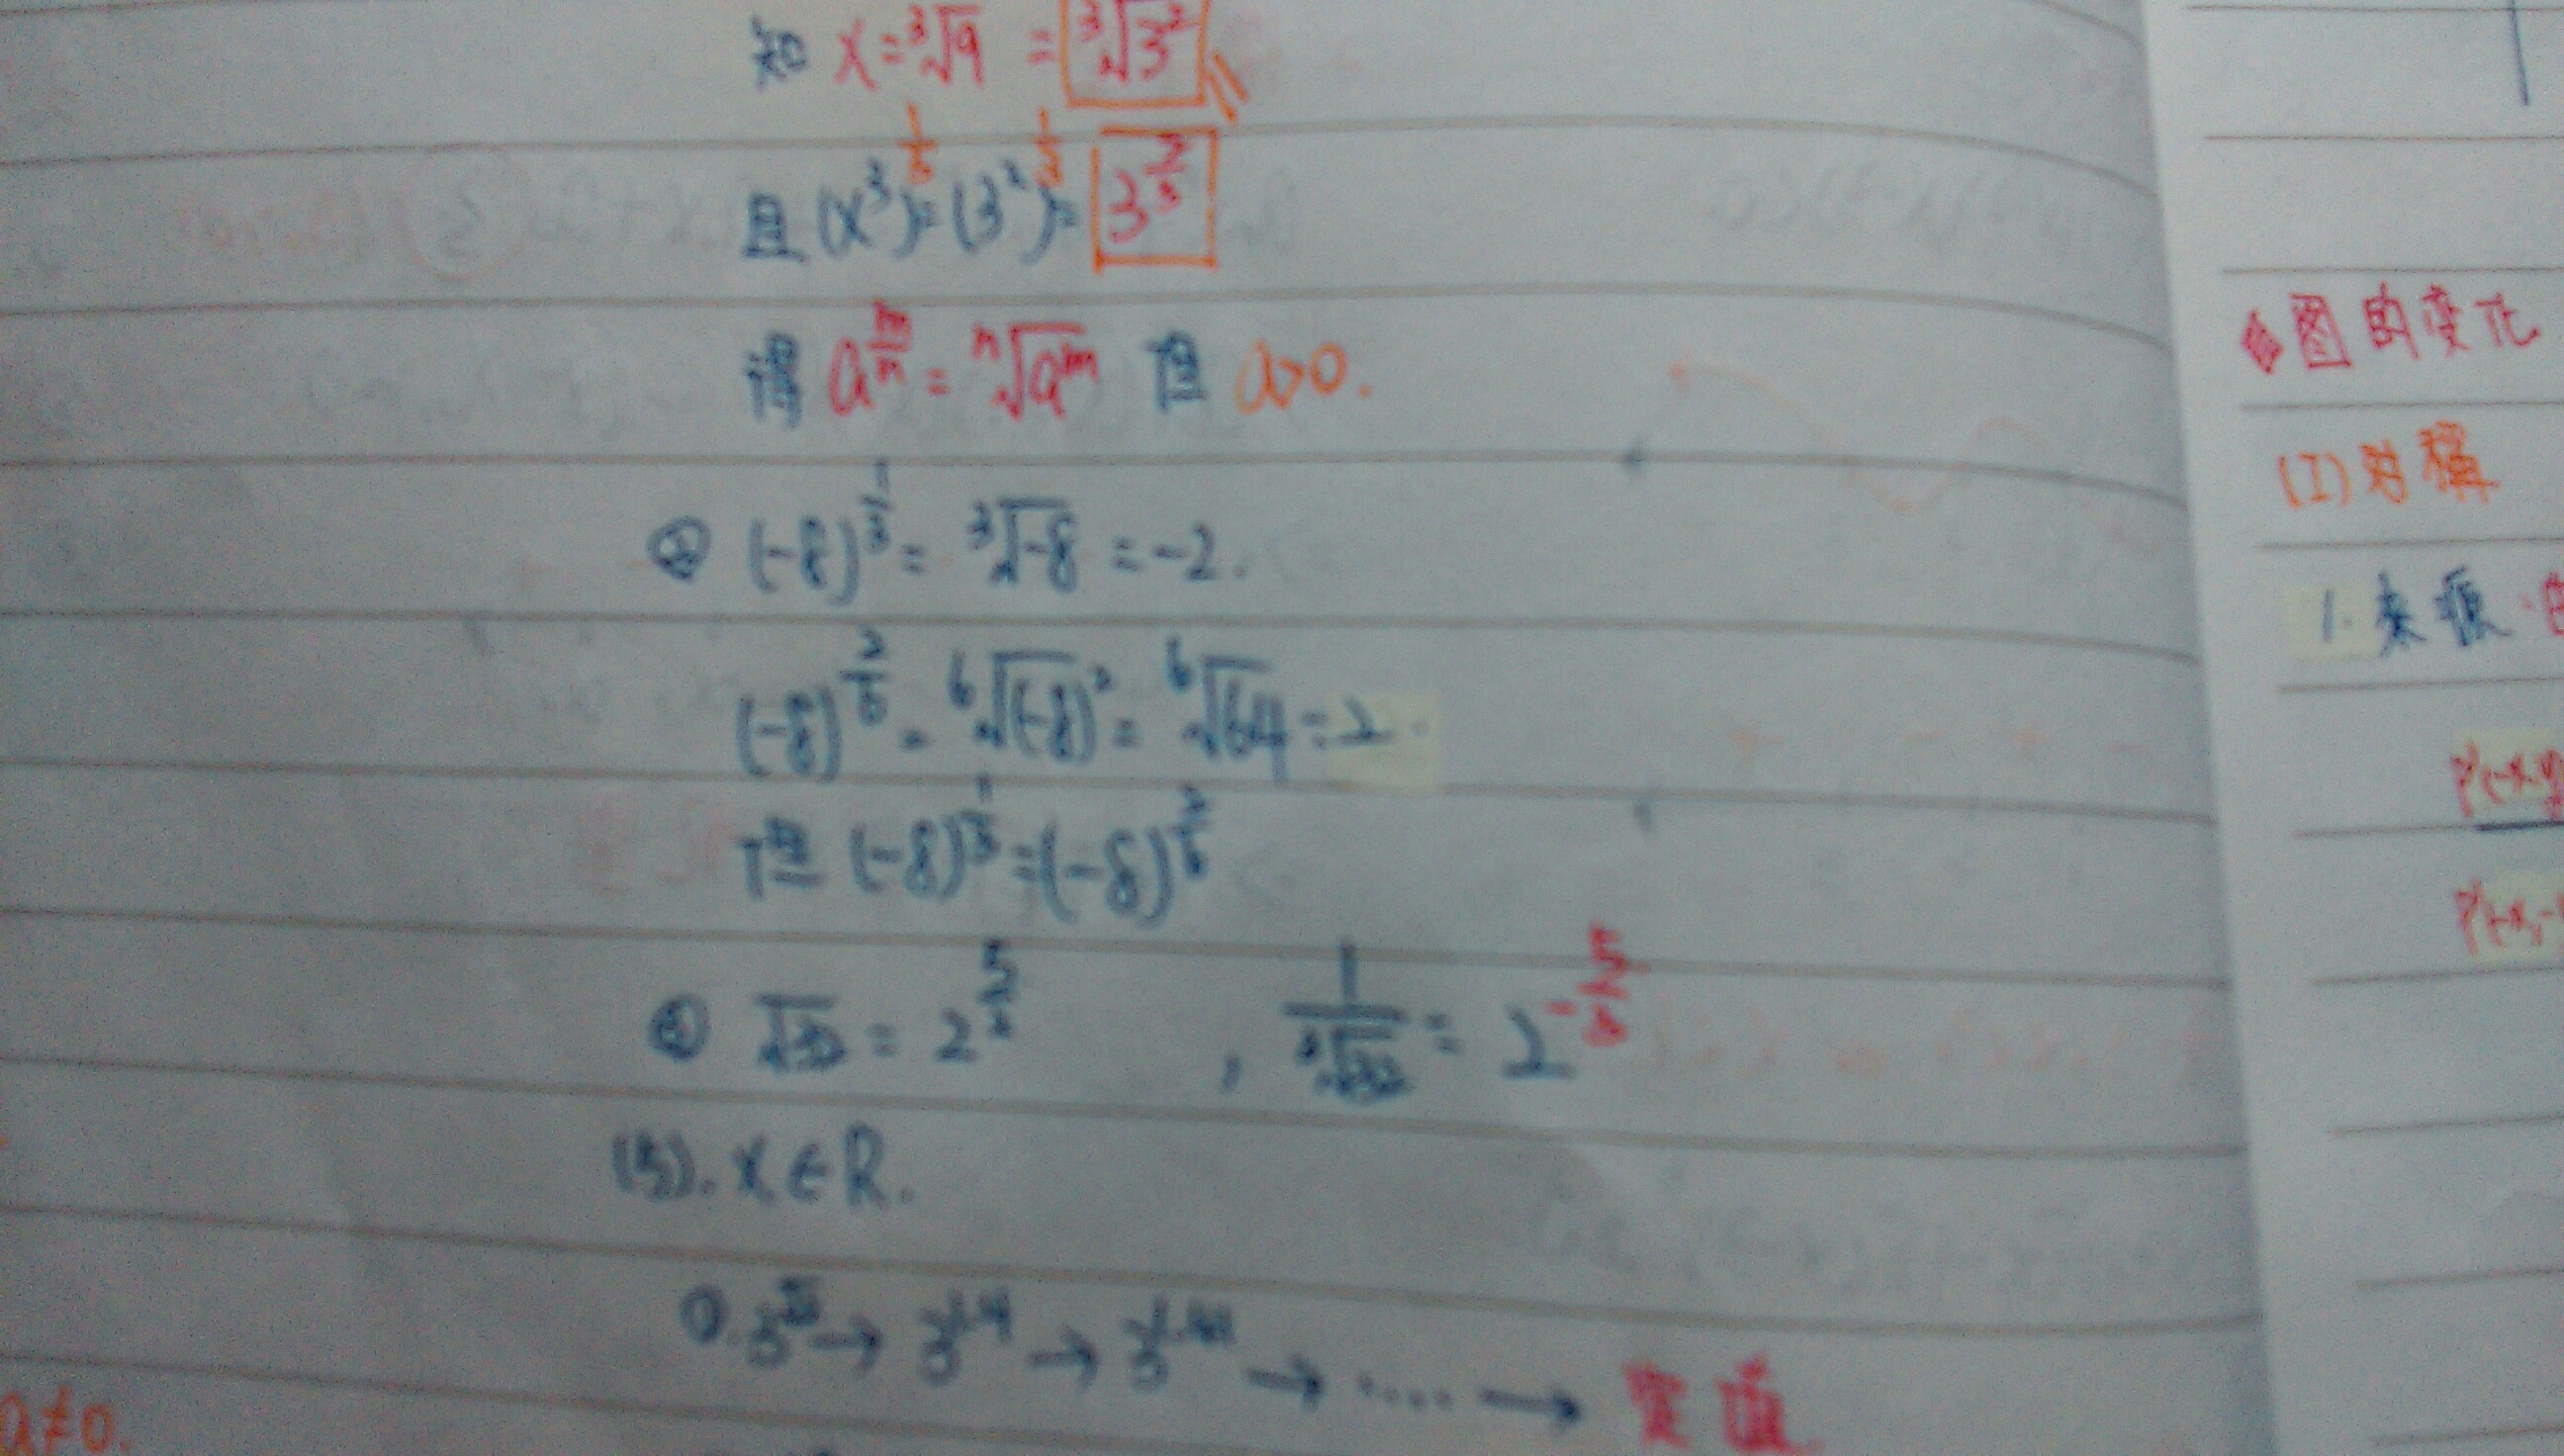 知 x=³√9 = ³√3²
且 (x³)^{1/3}=(3²)^{1/3}= 3^{2/3}
得 a^{m/n} = ⁿ√a^m 但 a>0.
(-8)^{1/3} = ³√-8 = -2.
(-8)^{2/6} = ⁶√(-8)² = ⁶√64 = 2.
但 (-8)^{1/3} = (-8)^{2/6}
√32 = 2^{5/2} , 1/³√32 = 2^{-5/3}
(5). x∈R.
①. 3^{√2} → 3^{1.4} → 3^{1.41} → ..... → 定值
a≠0.
◆图的变化
(I) 对稱
1. 来源
P'(-x,y)
P'(-x,-